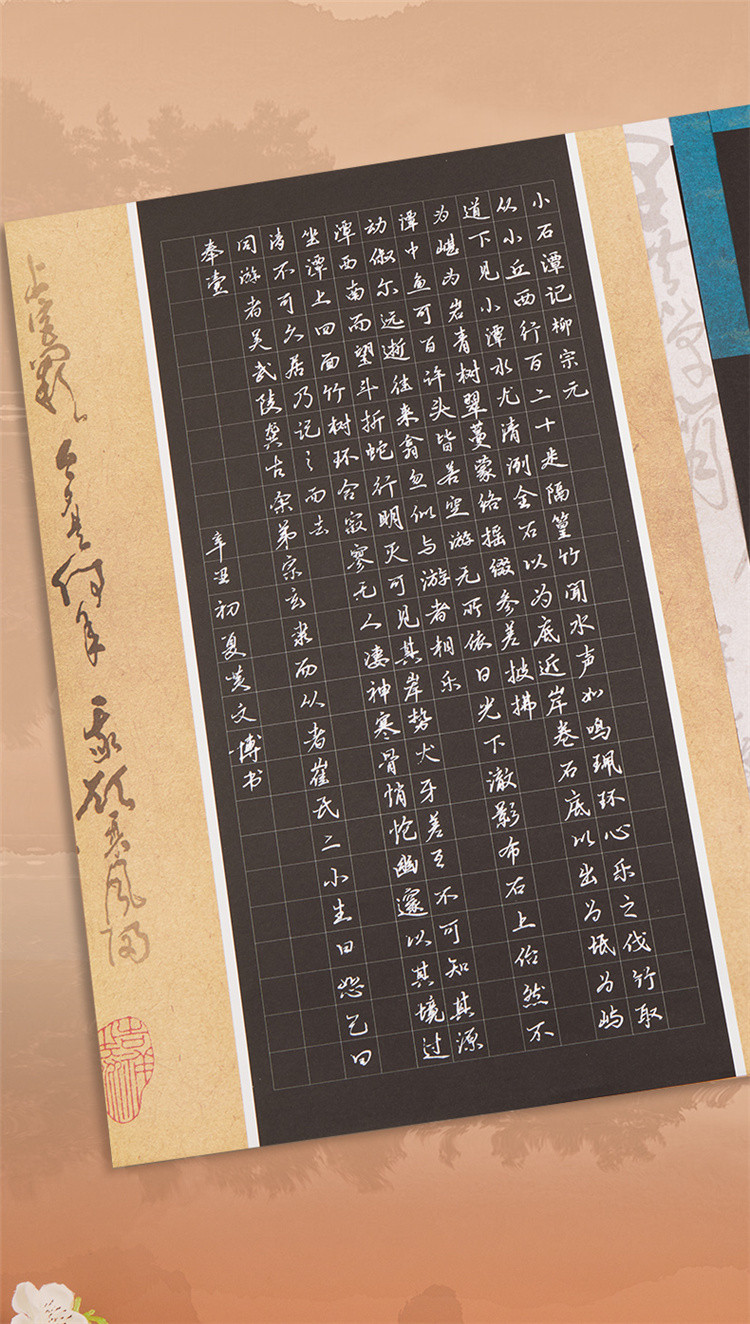 小石潭记柳宗元
从小丘西行百二十步隔篁竹闻水声如鸣珮环心乐之伐竹取
道下见小潭水尤清冽全石以为底近岸卷石底以出为坻为屿
为嵁为岩青树翠蔓蒙络摇缀参差披拂
潭中鱼可百许头皆若空游无所依日光下澈影布石上佁然不
动俶尔远逝往来翕忽似与游者相乐
潭西南而望斗折蛇行明灭可见其岸势犬牙差互不可知其源
坐潭上四面竹树环合寂寥无人凄神寒骨悄怆幽邃以其境过
清不可久居乃记之而去
同游者吴武陵龚古余弟宗玄隶而从者崔氏二小生曰恕己曰
奉壹
辛丑初夏黄文博书
上宫阙今夕是何年我欲乘风归